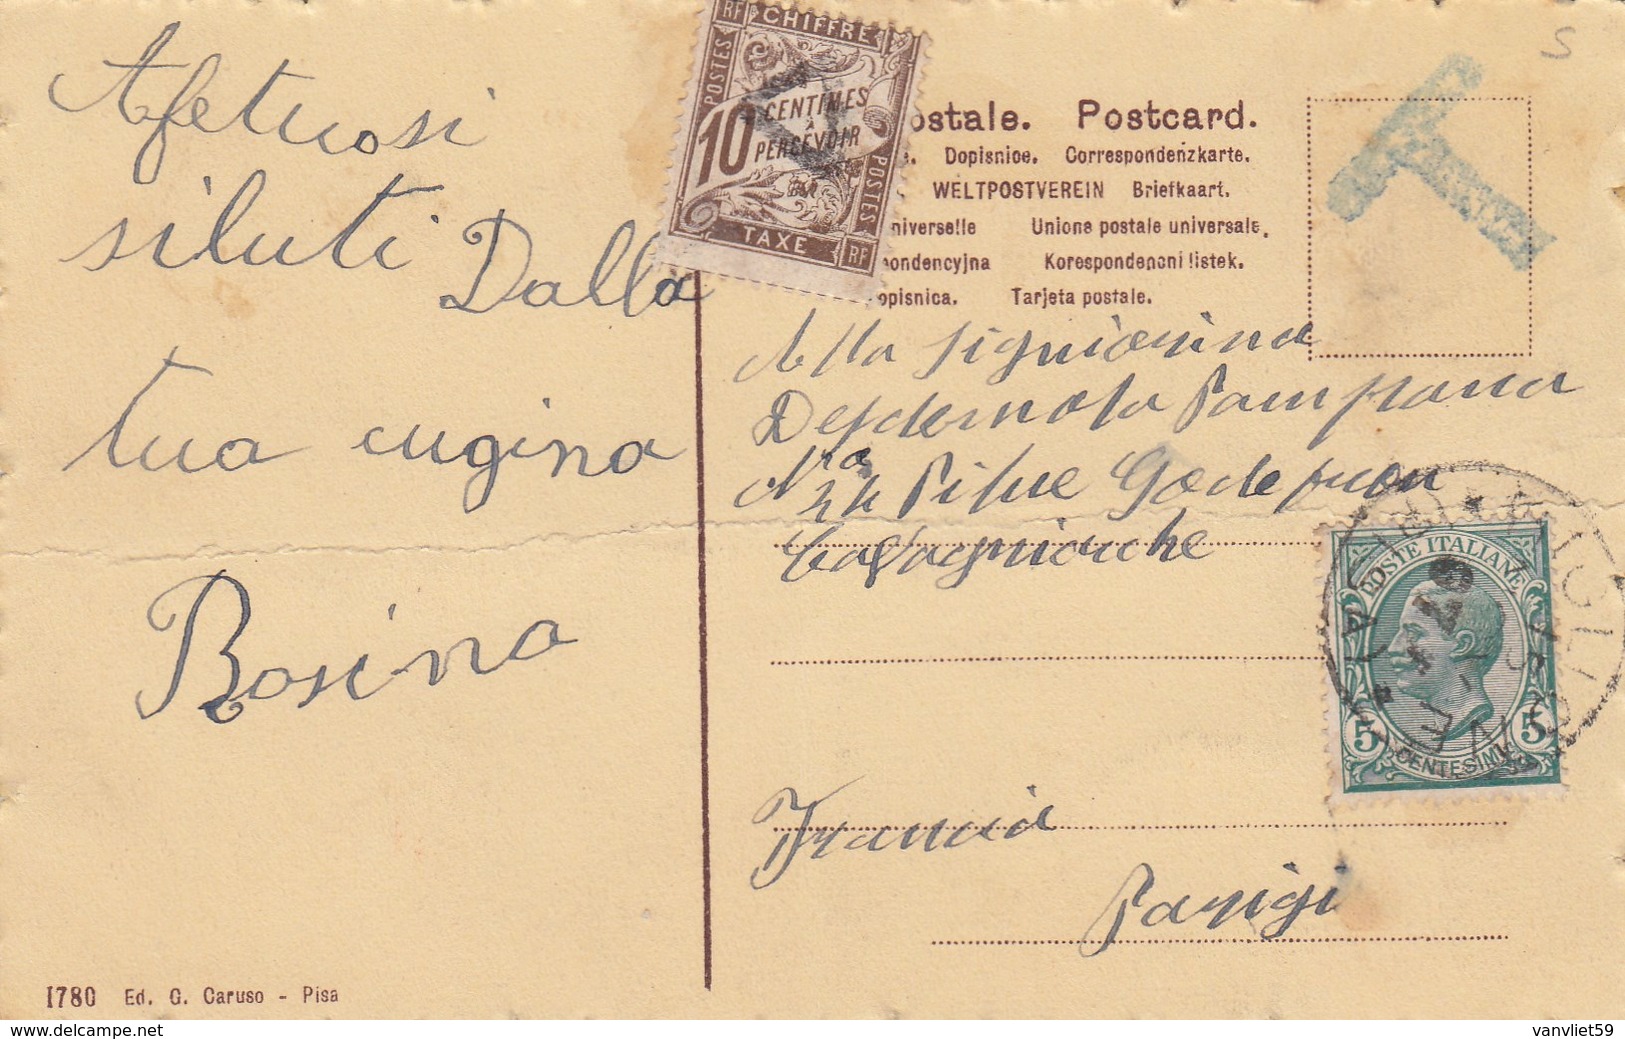 Afetuosi
siluti Dalla
tua cugina
Rosina
RF CHIFFRE
POSTES
10 CENTIMES
À
PERCEVOIR
POSTES
TAXE RF
ostale. Postcard.
e. Dopisnice. Correspondenzkarte.
WELTPOSTVEREIN Briefkaart.
niverselle Unione postale universale.
pondencyjna Korespondenčni listek.
opisnica. Tarjeta postale.
T
S
Alla signiorina
Desdemola Pampana
N.a 24
Francia
Parigi
POSTE ITALIANE
5 CENTESIMI 5
1780 Ed. G. Caruso - Pisa
www.delcampe.net
vanvliet59